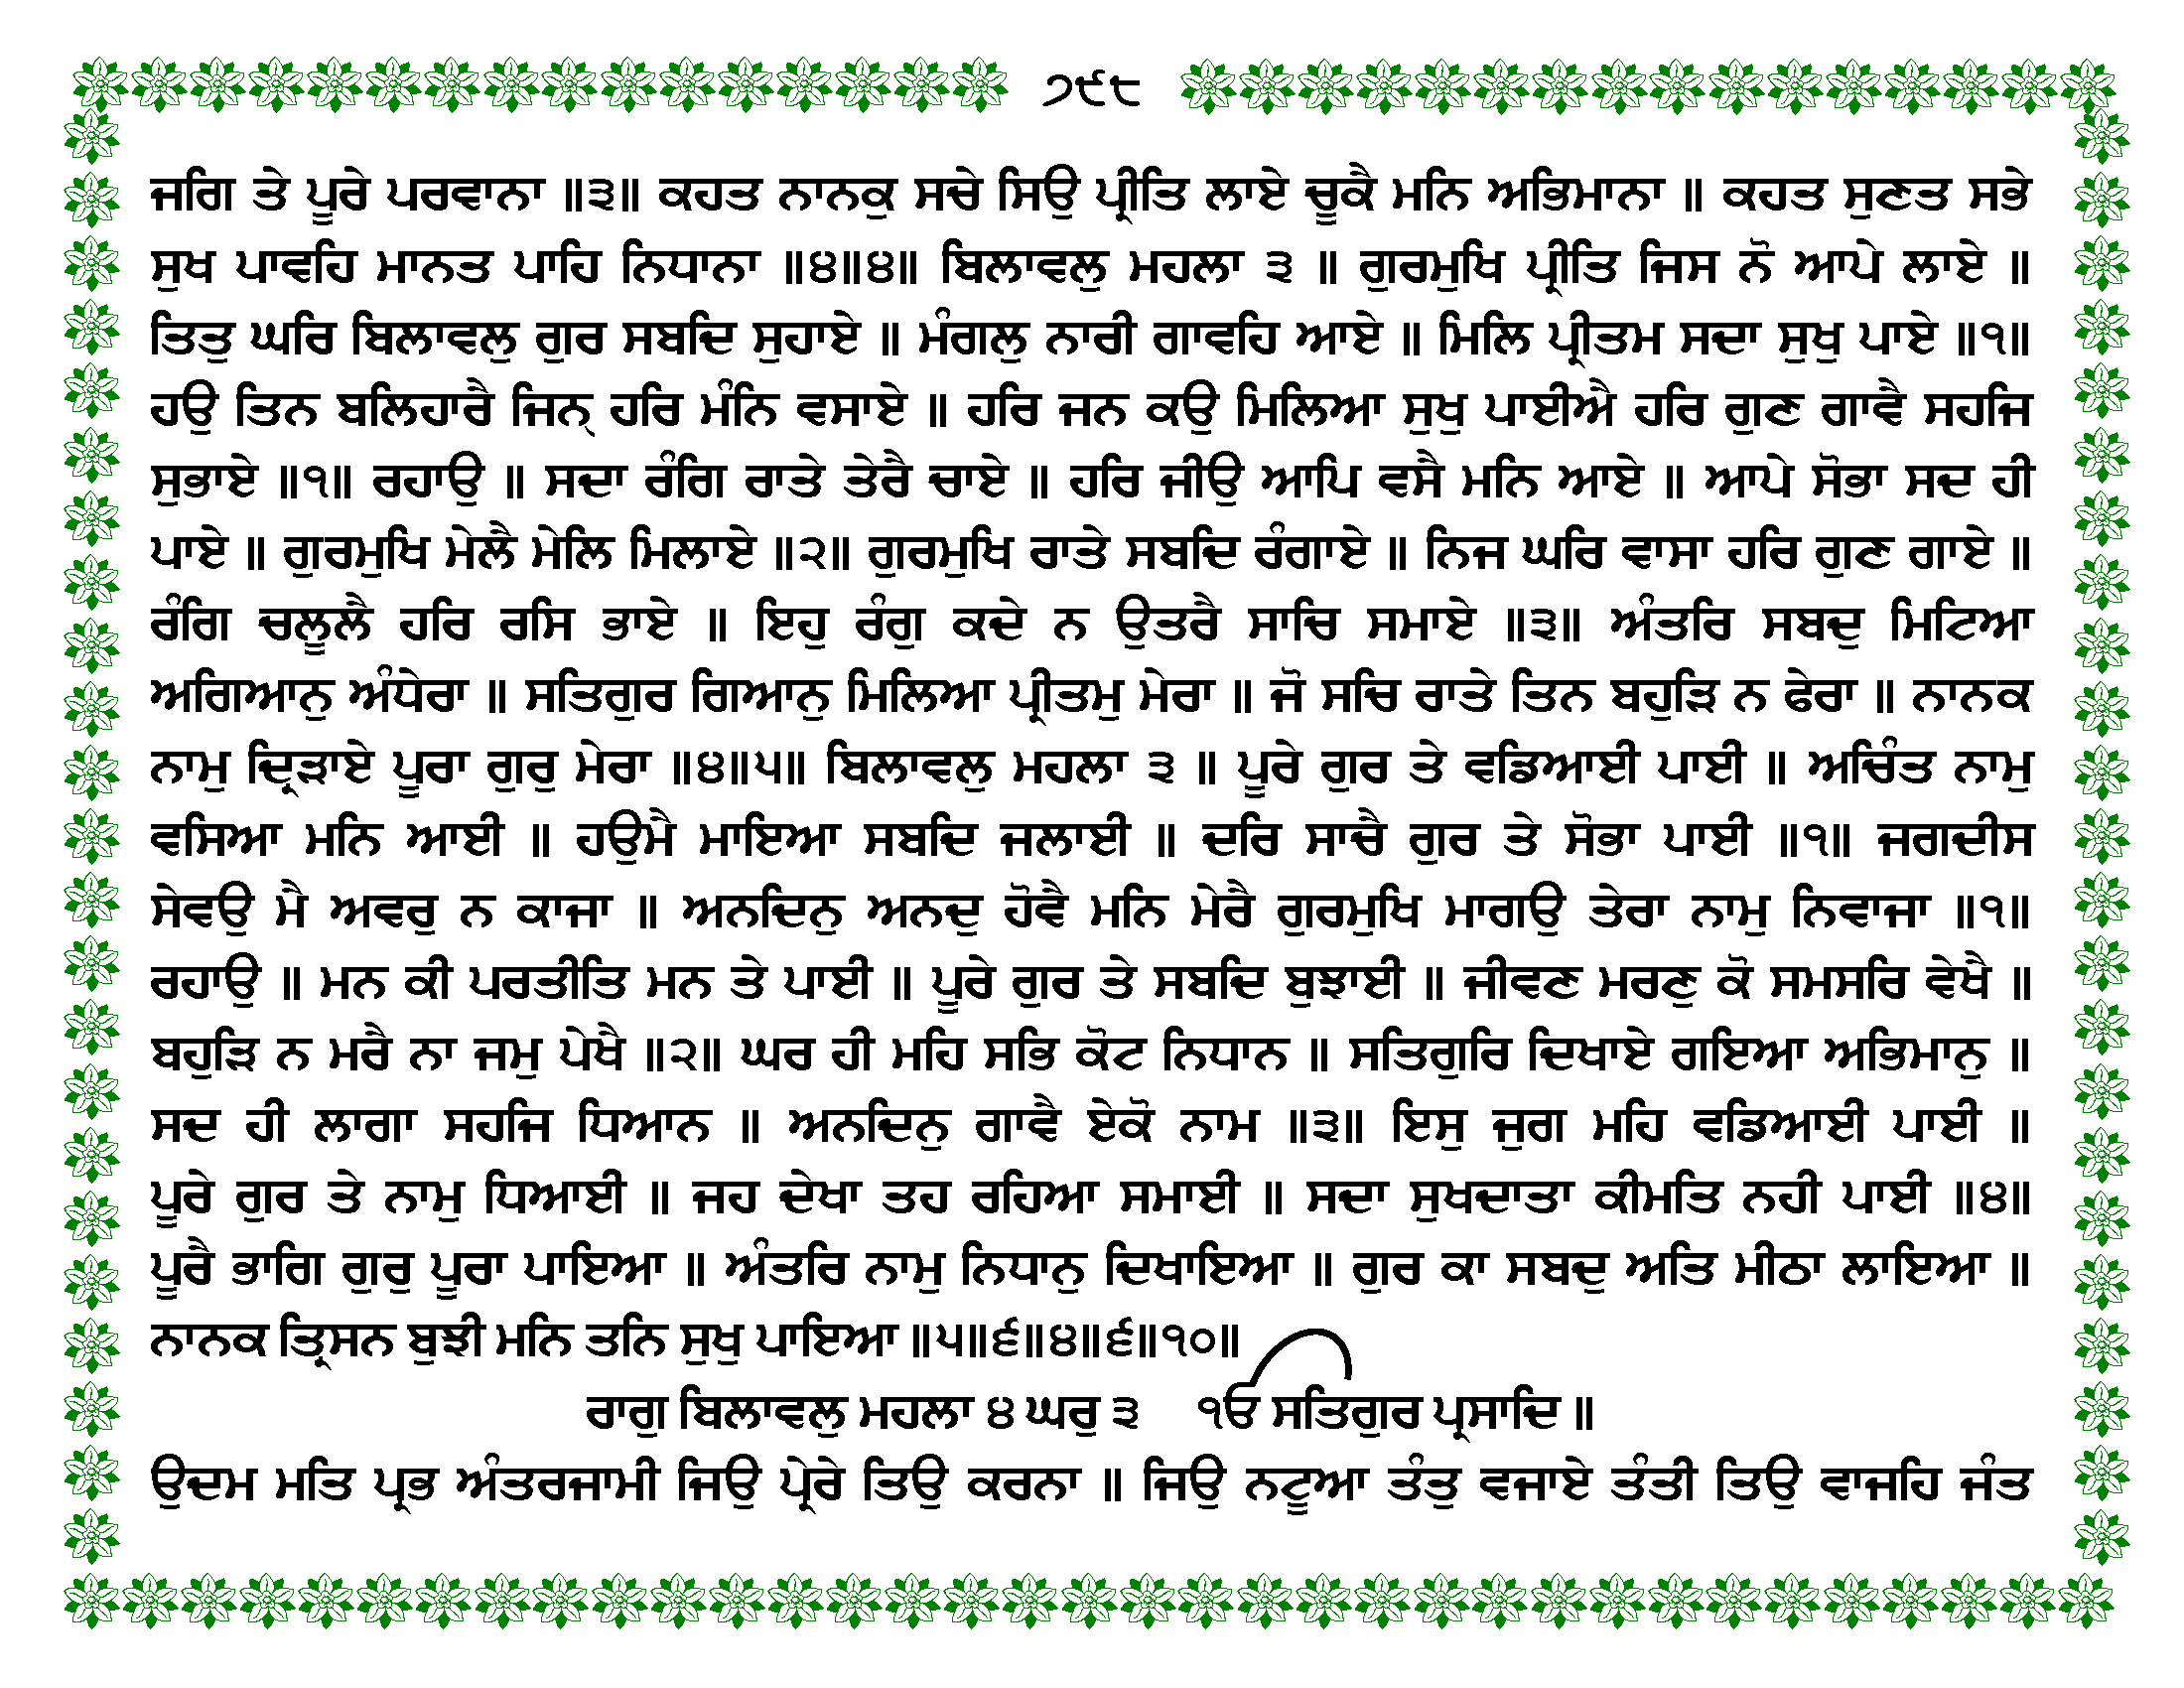 ੭੯੮
ਜਗਿ ਤੇ ਪੂਰੇ ਪਰਵਾਨਾ ॥੩॥ ਕਹਤ ਨਾਨਕੁ ਸਚੇ ਸਿਉ ਪ੍ਰੀਤਿ ਲਾਏ ਚੂਕੈ ਮਨਿ ਅਭਿਮਾਨਾ ॥ ਕਹਤ ਸੁਣਤ ਸਭੇ
ਸੁਖ ਪਾਵਹਿ ਮਾਨਤ ਪਾਹਿ ਨਿਧਾਨਾ ॥੪॥੪॥ ਬਿਲਾਵਲੁ ਮਹਲਾ ੩ ॥ ਗੁਰਮੁਖਿ ਪ੍ਰੀਤਿ ਜਿਸ ਨੋ ਆਪੇ ਲਾਏ ॥
ਤਿਤੁ ਘਰਿ ਬਿਲਾਵਲੁ ਗੁਰ ਸਬਦਿ ਸੁਹਾਏ ॥ ਮੰਗਲੁ ਨਾਰੀ ਗਾਵਹਿ ਆਏ ॥ ਮਿਲਿ ਪ੍ਰੀਤਮ ਸਦਾ ਸੁਖੁ ਪਾਏ ॥੧॥
ਹਉ ਤਿਨ ਬਲਿਹਾਰੈ ਜਿਨ੍ ਹਰਿ ਮੰਨਿ ਵਸਾਏ ॥ ਹਰਿ ਜਨ ਕਉ ਮਿਲਿਆ ਸੁਖੁ ਪਾਈਐ ਹਰਿ ਗੁਣ ਗਾਵੈ ਸਹਜਿ
ਸੁਭਾਏ ॥੧॥ ਰਹਾਉ ॥ ਸਦਾ ਰੰਗਿ ਰਾਤੇ ਤੇਰੈ ਚਾਏ ॥ ਹਰਿ ਜੀਉ ਆਪਿ ਵਸੈ ਮਨਿ ਆਏ ॥ ਆਪੇ ਸੋਭਾ ਸਦ ਹੀ
ਪਾਏ ॥ ਗੁਰਮੁਖਿ ਮੇਲੈ ਮੇਲਿ ਮਿਲਾਏ ॥੨॥ ਗੁਰਮੁਖਿ ਰਾਤੇ ਸਬਦਿ ਰੰਗਾਏ ॥ ਨਿਜ ਘਰਿ ਵਾਸਾ ਹਰਿ ਗੁਣ ਗਾਏ ॥
ਰੰਗਿ ਚਲੂਲੈ ਹਰਿ ਰਸਿ ਭਾਏ ॥ ਇਹੁ ਰੰਗੁ ਕਦੇ ਨ ਉਤਰੈ ਸਾਚਿ ਸਮਾਏ ॥੩॥ ਅੰਤਰਿ ਸਬਦੁ ਮਿਟਿਆ
ਅਗਿਆਨੁ ਅੰਧੇਰਾ ॥ ਸਤਿਗੁਰ ਗਿਆਨੁ ਮਿਲਿਆ ਪ੍ਰੀਤਮੁ ਮੇਰਾ ॥ ਜੋ ਸਚਿ ਰਾਤੇ ਤਿਨ ਬਹੁੜਿ ਨ ਫੇਰਾ ॥ ਨਾਨਕ
ਨਾਮੁ ਦ੍ਰਿੜਾਏ ਪੂਰਾ ਗੁਰੁ ਮੇਰਾ ॥੪॥੫॥ ਬਿਲਾਵਲੁ ਮਹਲਾ ੩ ॥ ਪੂਰੇ ਗੁਰ ਤੇ ਵਡਿਆਈ ਪਾਈ ॥ ਅਚਿੰਤ ਨਾਮੁ
ਵਸਿਆ ਮਨਿ ਆਈ ॥ ਹਉਮੈ ਮਾਇਆ ਸਬਦਿ ਜਲਾਈ ॥ ਦਰਿ ਸਾਚੈ ਗੁਰ ਤੇ ਸੋਭਾ ਪਾਈ ॥੧॥ ਜਗਦੀਸ
ਸੇਵਉ ਮੈ ਅਵਰੁ ਨ ਕਾਜਾ ॥ ਅਨਦਿਨੁ ਅਨਦੁ ਹੋਵੈ ਮਨਿ ਮੇਰੈ ਗੁਰਮੁਖਿ ਮਾਗਉ ਤੇਰਾ ਨਾਮੁ ਨਿਵਾਜਾ ॥੧॥
ਰਹਾਉ ॥ ਮਨ ਕੀ ਪਰਤੀਤਿ ਮਨ ਤੇ ਪਾਈ ॥ ਪੂਰੇ ਗੁਰ ਤੇ ਸਬਦਿ ਬੁਝਾਈ ॥ ਜੀਵਣ ਮਰਣੁ ਕੋ ਸਮਸਰਿ ਵੇਖੈ ॥
ਬਹੁੜਿ ਨ ਮਰੈ ਨਾ ਜਮੁ ਪੇਖੈ ॥੨॥ ਘਰ ਹੀ ਮਹਿ ਸਭਿ ਕੋਟ ਨਿਧਾਨ ॥ ਸਤਿਗੁਰਿ ਦਿਖਾਏ ਗਇਆ ਅਭਿਮਾਨੁ ॥
ਸਦ ਹੀ ਲਾਗਾ ਸਹਜਿ ਧਿਆਨ ॥ ਅਨਦਿਨੁ ਗਾਵੈ ਏਕੋ ਨਾਮ ॥੩॥ ਇਸੁ ਜੁਗ ਮਹਿ ਵਡਿਆਈ ਪਾਈ ॥
ਪੂਰੇ ਗੁਰ ਤੇ ਨਾਮੁ ਧਿਆਈ ॥ ਜਹ ਦੇਖਾ ਤਹ ਰਹਿਆ ਸਮਾਈ ॥ ਸਦਾ ਸੁਖਦਾਤਾ ਕੀਮਤਿ ਨਹੀ ਪਾਈ ॥੪॥
ਪੂਰੈ ਭਾਗਿ ਗੁਰੁ ਪੂਰਾ ਪਾਇਆ ॥ ਅੰਤਰਿ ਨਾਮੁ ਨਿਧਾਨੁ ਦਿਖਾਇਆ ॥ ਗੁਰ ਕਾ ਸਬਦੁ ਅਤਿ ਮੀਠਾ ਲਾਇਆ ॥
ਨਾਨਕ ਤ੍ਰਿਸਨ ਬੁਝੀ ਮਨਿ ਤਨਿ ਸੁਖੁ ਪਾਇਆ ॥੫॥੬॥੪॥੬॥੧੦॥
ਰਾਗੁ ਬਿਲਾਵਲੁ ਮਹਲਾ ੪ ਘਰੁ ੩ ੴ ਸਤਿਗੁਰ ਪ੍ਰਸਾਦਿ ॥
ਉਦਮ ਮਤਿ ਪ੍ਰਭ ਅੰਤਰਜਾਮੀ ਜਿਉ ਪ੍ਰੇਰੇ ਤਿਉ ਕਰਨਾ ॥ ਜਿਉ ਨਟੂਆ ਤੰਤੁ ਵਜਾਏ ਤੰਤੀ ਤਿਉ ਵਾਜਹਿ ਜੰਤ